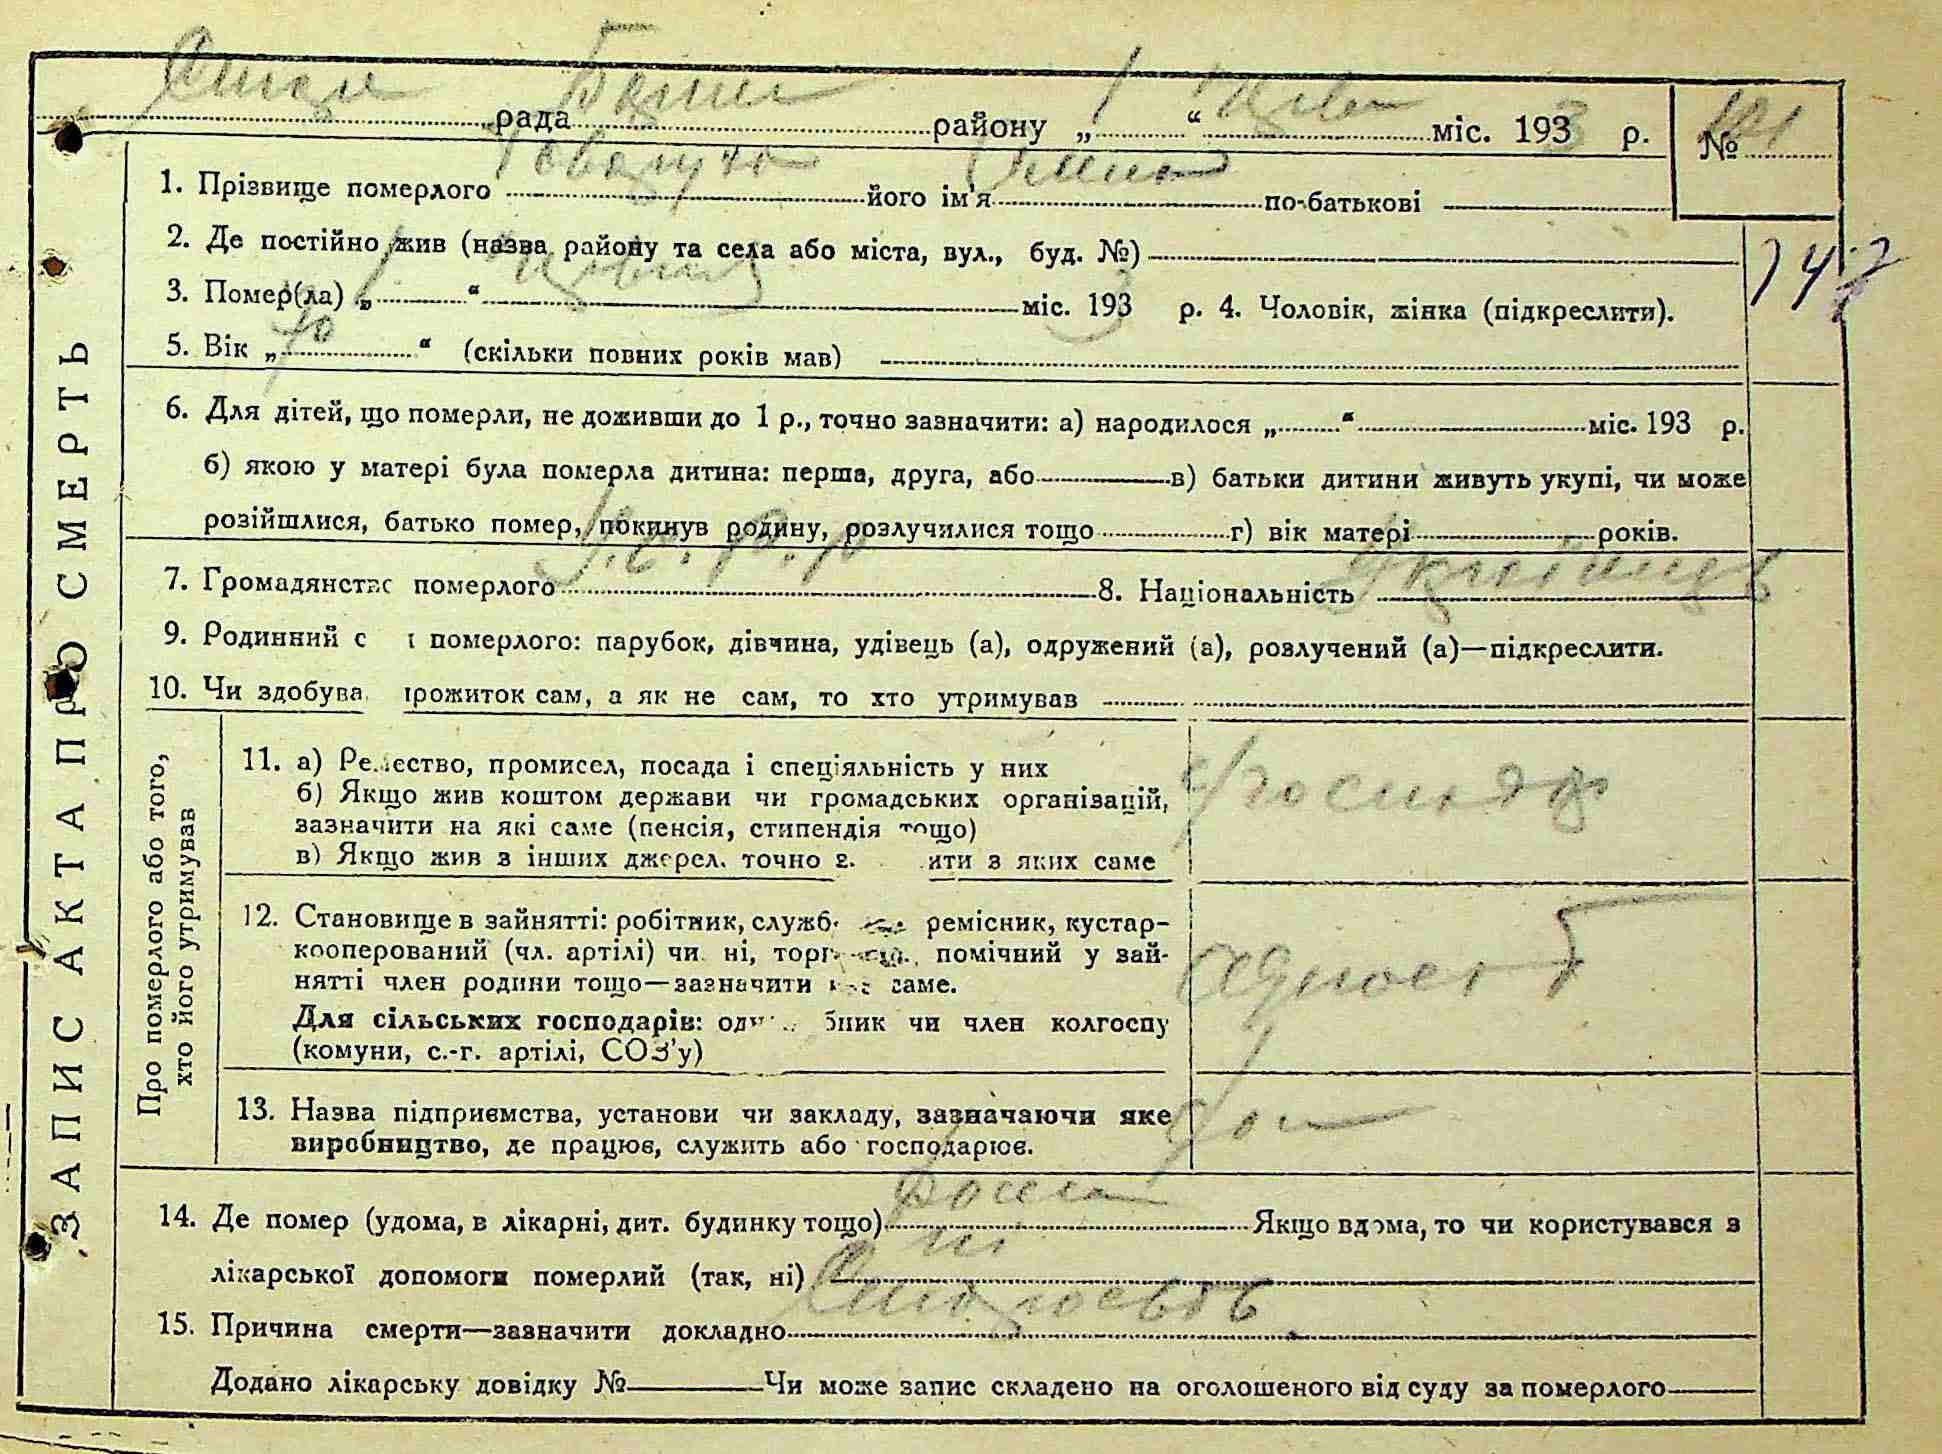 рада району „ 1 “ міс. 1933 р. №
1. Прізвище померлого його ім'я по-батькові
2. Де постійно жив (назва району та села або міста, вул., буд. №)
3. Помер(ла) „ 1 “ міс. 1933 р. 4. Чоловік, жінка (підкреслити).
147
5. Вік „ 70 “ (скільки повних років мав)
6. Для дітей, що померли, не доживши до 1 р., точно зазначити: а) народилося „ “ міс. 193 р.
б) якою у матері була померла дитина: перша, друга, або в) батьки дитини живуть укупі, чи може
розійшлися, батько помер, покинув родину, розлучилися тощо г) вік матері років.
7. Громадянство померлого У.С.Р.Р 8. Національність Українець
9. Родинний с померлого: парубок, дівчина, удівець (а), одружений (а), розлучений (а)—підкреслити.
10. Чи здобува прожиток сам, а як не сам, то хто утримував
ЗАПИС АКТА ПРО СМЕРТЬ
Про померлого або того,
хто його утримував
11. а) Ремество, промисел, посада і спеціяльність у них
б) Якщо жив коштом держави чи громадських організацій,
зазначити на які саме (пенсія, стипендія тощо)
в) Якщо жив з інших джерел, точно з ити з яких саме
12. Становище в зайнятті: робітник, служб ремісник, кустар-
кооперований (чл. артілі) чи ні, торг помічний у зай-
нятті член родини тощо—зазначити саме.
Для сільських господарів: од бник чи член колгоспу
(комуни, с.-г. артілі, СОЗ'у)
13. Назва підприємства, установи чи закладу, зазначаючи яке
виробництво, де працює, служить або господарює.
14. Де помер (удома, в лікарні, дит. будинку тощо) Якщо вдома, то чи користувався з
лікарської допомоги померлий (так, ні) ні
15. Причина смерти—зазначити докладно
Додано лікарську довідку № Чи може запис складено на оголошеного від суду за померлого